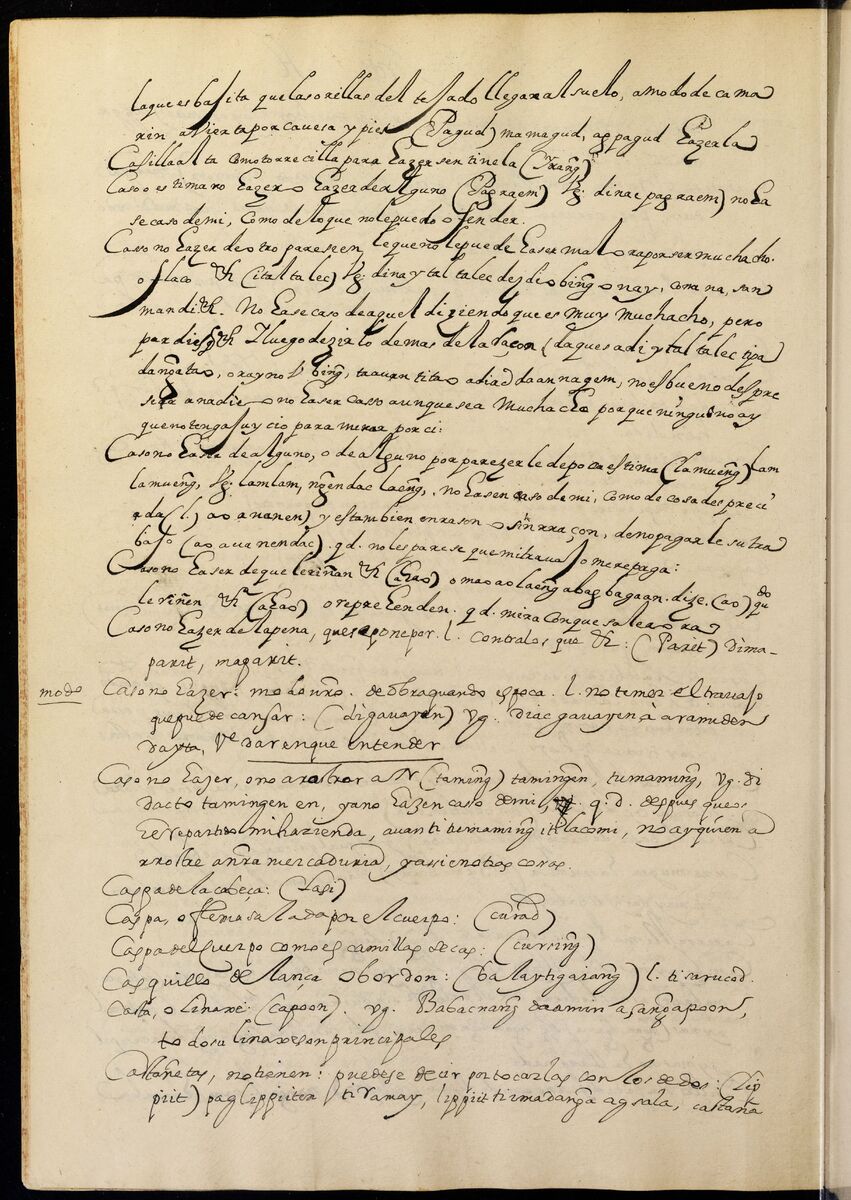 la que es baſita que las orillas del teſado llegan al suelo, a modo de cama
rin avierta por cavesa y pies (Pagud) mamagud, ag pagud hazerla
Casilla alta como torrecilla para hazer sentinela (
Caso o estima no hazer o hazer de alguno (Pagraem) Vg. dinac pagraem) no ha
se caso de mi, como de lo que no le puedo ofender.
Caso no hazer de otro pareseen le que no le puede haser mal ora por ser muchacho.
o flaco &c (ital talec) Vg. dina y tal talec
mandi &c. No hase caso de aquel diziendo que es muy muchacho, pero
par dies &c luego dezia lo demas de la
no es bueno despre
sear a nadie o no haser casso aunque sea muchacho porque ninguno ay
que no tenga ſuycio para mirar por ci:
Caso no haser de alguno, o de alguno por parezerle de poca estima (lamueng) lam
lamueng, Vg. lamlam, ngendac laeng, no hasen caso de mi, como de cosa despreci
ada (l.) ao avanen) y es tambien en rason o sin rraçon, de no pagarle su tra
baſo (ao avanendac) qd. no les parese que mi travaſo merepaga:
Caso no haser de que le riñan &c (ahao) o mao ao laeng abagbagaan. dize (ao) do qu
le riñen &c (ahao) o reprehenden. qd. mira con que sale ora
Caso no hazer de la pena, que se pone por. l. contra los que &c: (Parit) dima-
parit, magarit.
modo Caso no hazer: modo nro. de obra quando es poca. l. no temer el travaſo
que puede cansar: (di gavayen) vg. diac gavayen à aramiden
dayta, Ve. dar en que entender
Caso no hazer, o no arrostrar a N (taming) tamingen, tumaming, vg. di
dacto tamingen en, ya no hazen caso de mi, q. d. despues que os
he repartido mi hazienda, avan ti tumaming iti lacomi, no ay quien a
rrostre a nra mercaduria, y assi en otras cosas.
Caspa de la cabeça: (lasi)
Caspa, o flema salada por el cuerpo: (curad)
Caspa del cuerpo como escamillas secas: (cursing)
Casquillo de lança o bordon: (balaytigaiang) l. ti sarucod.
Casta, o linaxe: (capoon). vg. Babacnang daamin a sangapoon,
todo su linaxe son principales
Castañetas, no tienen: puedese decir por tocarlas con los dedos: (lip
piit) paglippiiten ti ramay, lippiit ti imadanga agsala, castaña